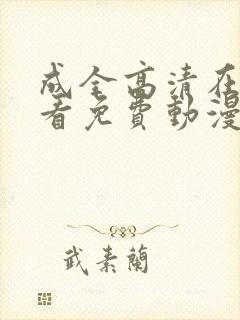 成全高清在
看免費動漫
武素蘭